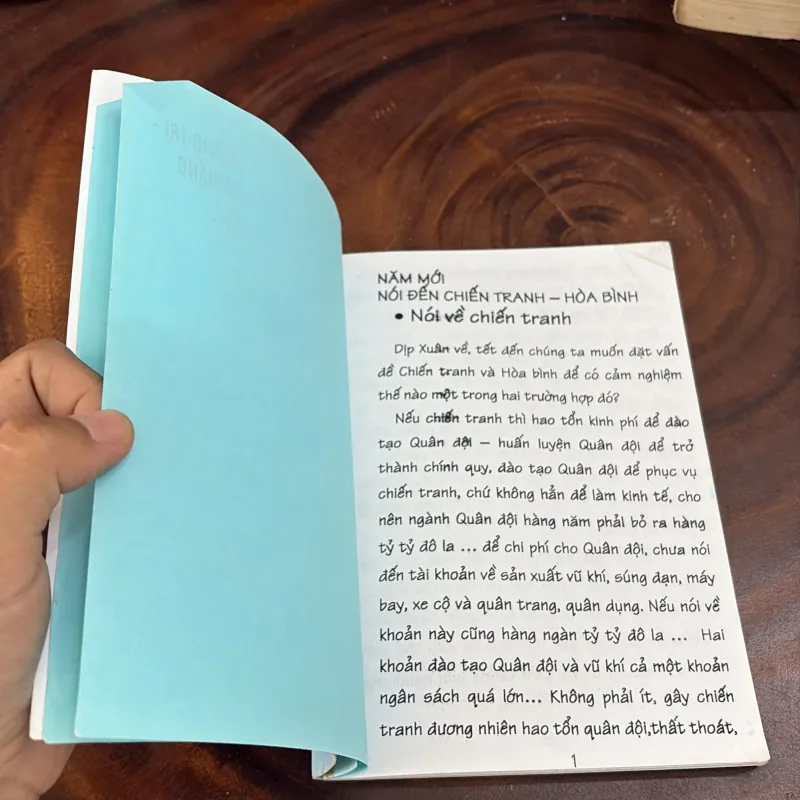 NĂM MỚI
NÓI ĐẾN CHIẾN TRANH – HÒA BÌNH
• Nói về chiến tranh
Dịp Xuân về, tết đến chúng ta muốn đặt vấn
đề Chiến tranh và Hòa bình để có cảm nghiệm
thế nào một trong hai trường hợp đó?
Nếu chiến tranh thì hao tổn kinh phí để đào
tạo Quân đội – huấn luyện Quân đội để trở
thành chính quy, đào tạo Quân đội để phục vụ
chiến tranh, chứ không hẳn để làm kinh tế, cho
nên ngành Quân đội hàng năm phải bỏ ra hàng
tỷ tỷ đô la ... để chi phí cho Quân đội, chưa nói
đến tài khoản về sản xuất vũ khí, súng đạn, máy
bay, xe cộ và quân trang, quân dụng. Nếu nói về
khoản này cũng hàng ngàn tỷ tỷ đô la ... Hai
khoản đào tạo Quân đội và vũ khí cả một khoản
ngân sách quá lớn... Không phải ít, gây chiến
tranh đương nhiên hao tổn quân đội,thất thoát,
1